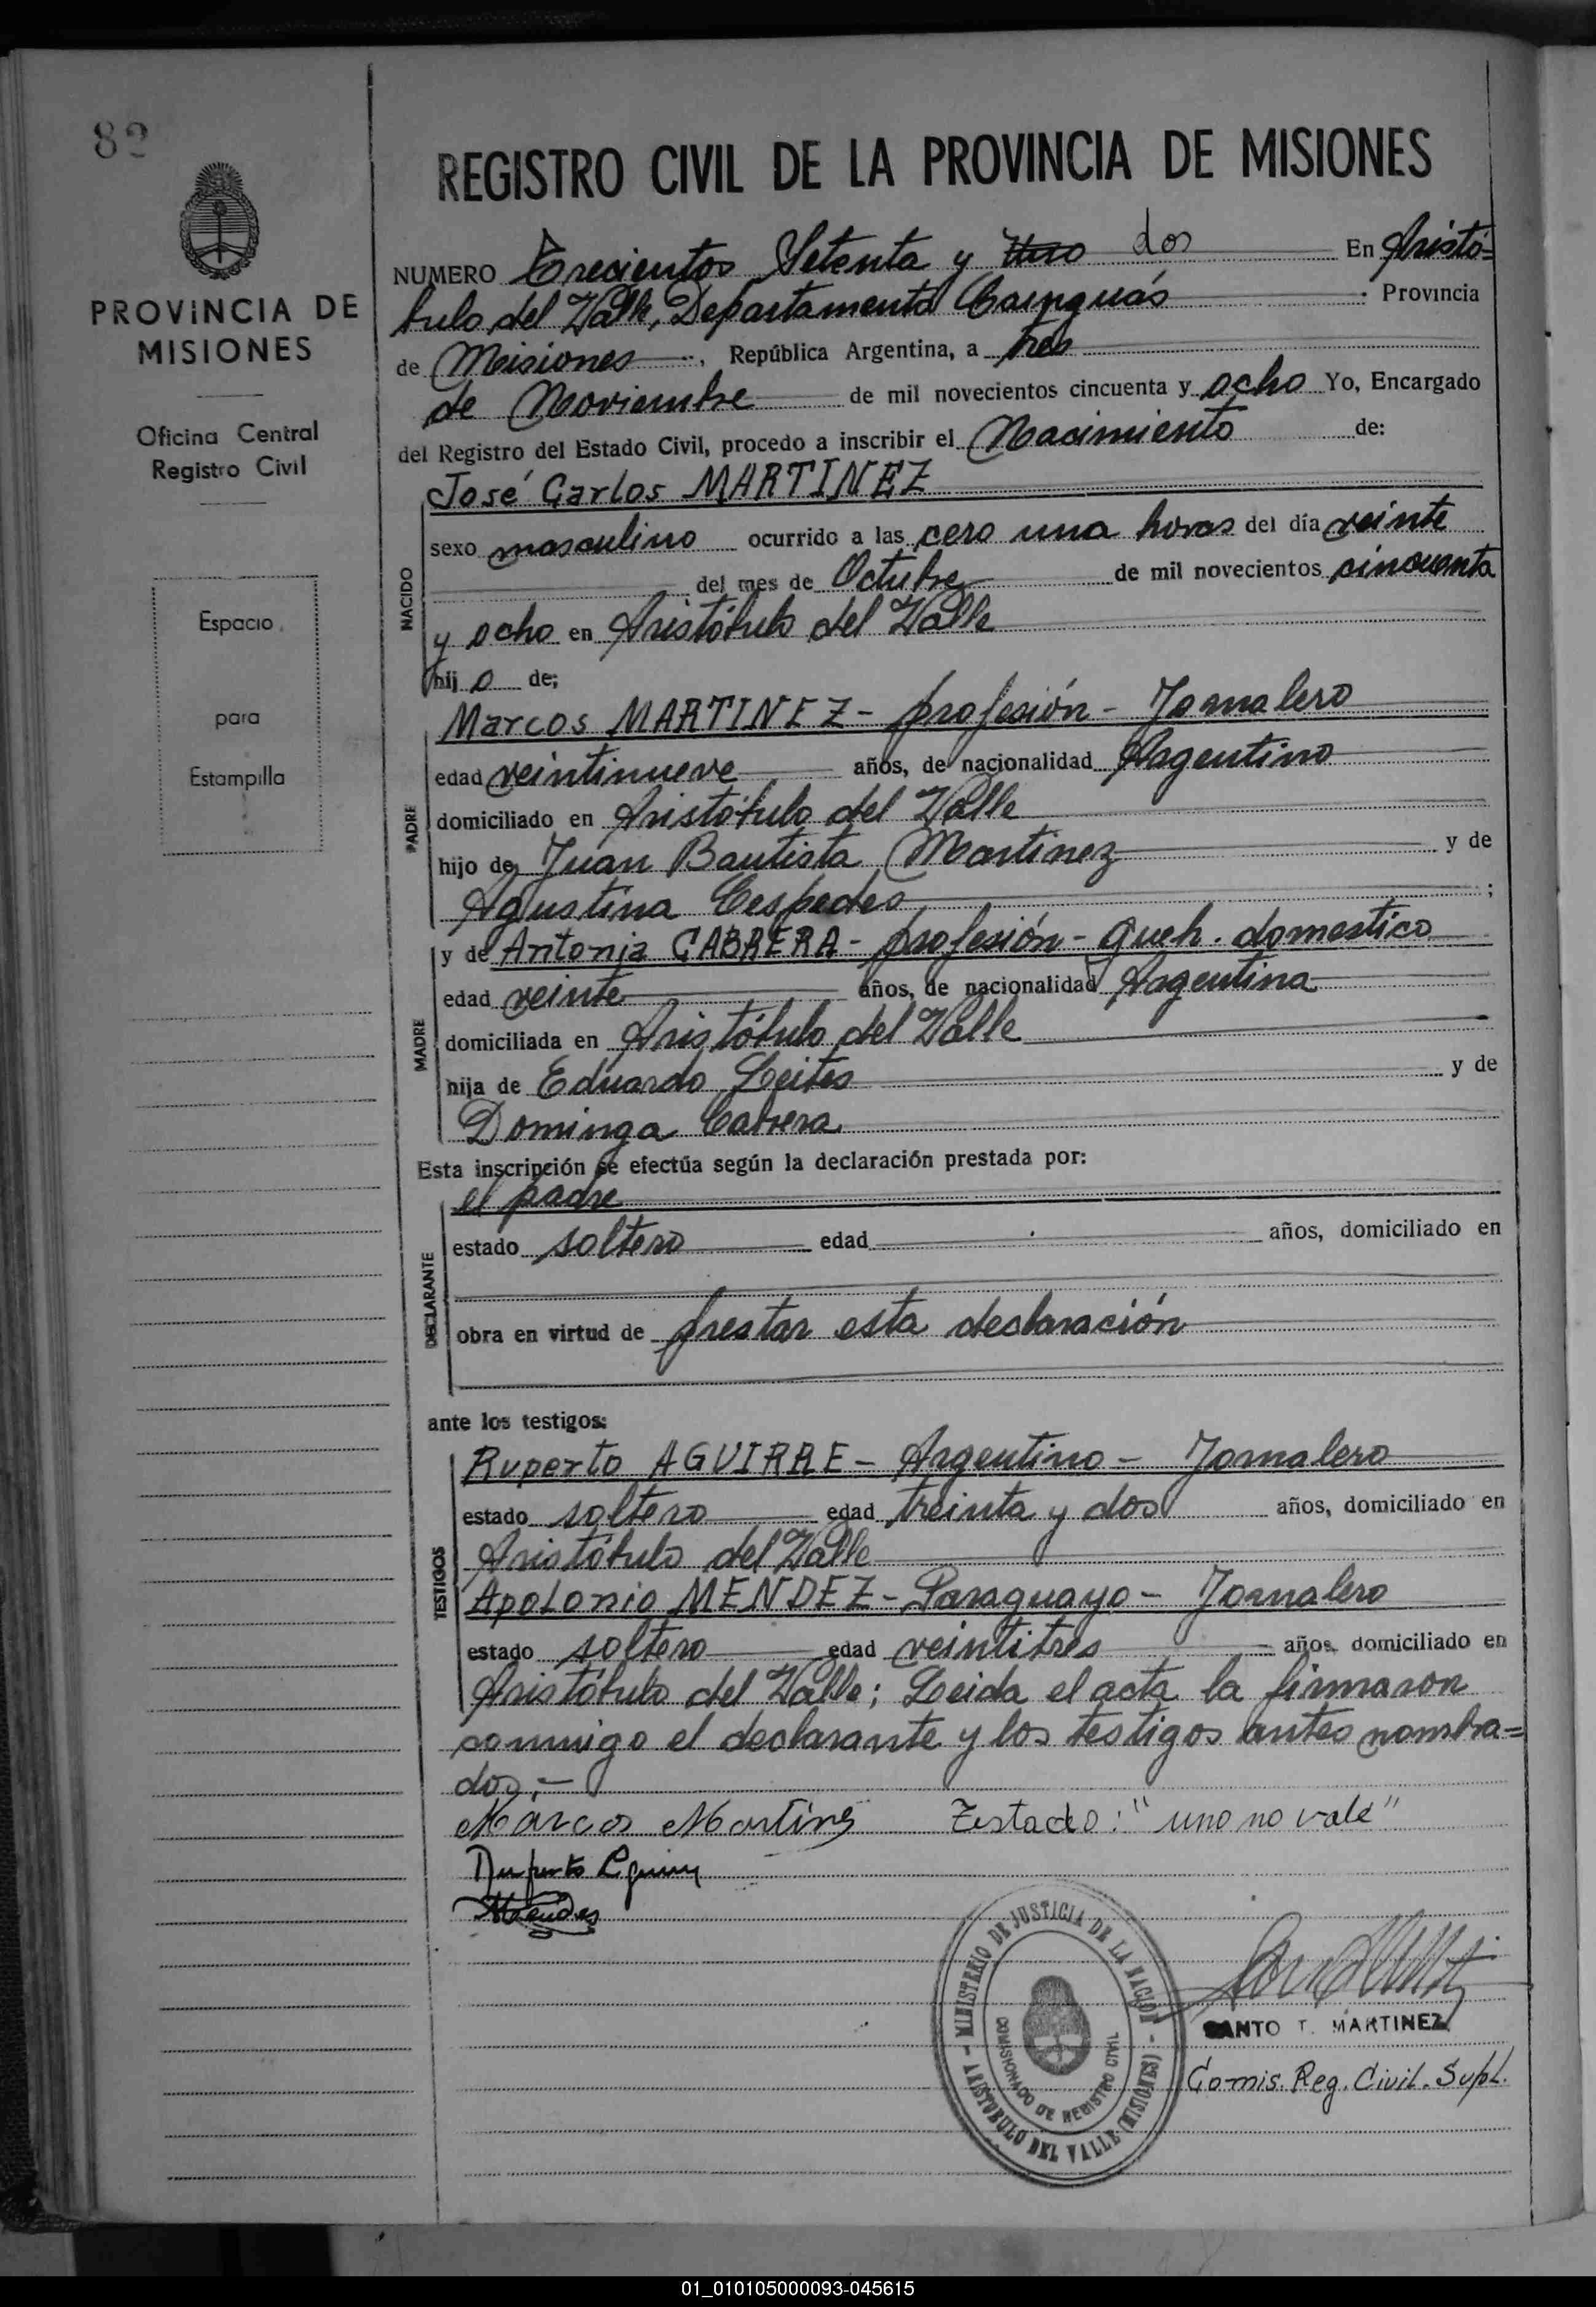 82
PROVINCIA DE
MISIONES
Oficina Central
Registro Civil
Espacio
para
Estampilla
REGISTRO CIVIL DE LA PROVINCIA DE MISIONES
NUMERO Trecientos Setenta y Uno dos En Aristó=
bulo del Valle, Departamento Cainguás Provincia
de Misiones, República Argentina, a tres
de Noviembre de mil novecientos cincuenta y ocho Yo, Encargado
del Registro del Estado Civil, procedo a inscribir el Nacimiento de:
NACIDO
José Carlos MARTINEZ
sexo masculino ocurrido a las cero una horas del día veinte
del mes de Octubre de mil novecientos cincuenta
y ocho en Aristóbulo del Valle
hij o de;
PADRE
Marcos MARTINEZ - profesión - Jornalero
edad veintinueve años, de nacionalidad Argentino
domiciliado en Aristóbulo del Valle
hijo de Juan Bautista Martinez y de
Agustina Cespedes ;
MADRE
y de Antonia CABRERA - profesión - queh. domestico
edad veinte años, de nacionalidad Argentina
domiciliada en Aristóbulo del Valle
hija de Eduardo Leites y de
Dominga Cabrera
Esta inscripción se efectúa según la declaración prestada por:
DECLARANTE
el padre
estado soltero edad años, domiciliado en
obra en virtud de prestar esta declaración
ante los testigos:
TESTIGOS
Ruperto AGUIRRE - Argentino - Jornalero
estado soltero edad treinta y dos años, domiciliado en
Aristóbulo del Valle
Apolonio MENDEZ - Paraguayo - Jornalero
estado soltero edad veintitres años, domiciliado en
Aristóbulo del Valle; Leida el acta la firmaron
conmigo el declarante y los testigos antes nombra=
dos.-
Marcos Martines Testado: "uno no vale"
Ruperto Aguirre
Mendes
MINISTERIO DE JUSTICIA DE LA NACION - ARISTOBULO DEL VALLE (MISIONES) -
COMISIONADO DE REGISTRO CIVIL
SANTO T. MARTINEZ
Comis. Reg. Civil. Supl.
01_010105000093-045615